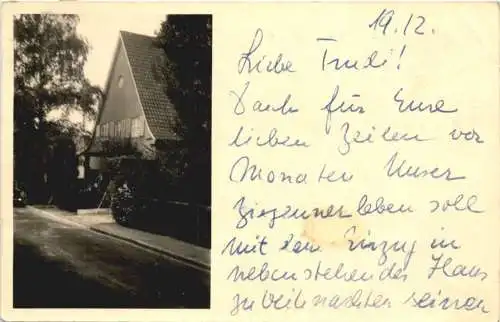 19.12.
Liebe Trudi!
Dank für Eure
lieben Zeilen vor
Monaten Unser
Zigeunerleben soll
mit dem Einzug in
nebenstehendes Haus
zu Weihnachten seinen